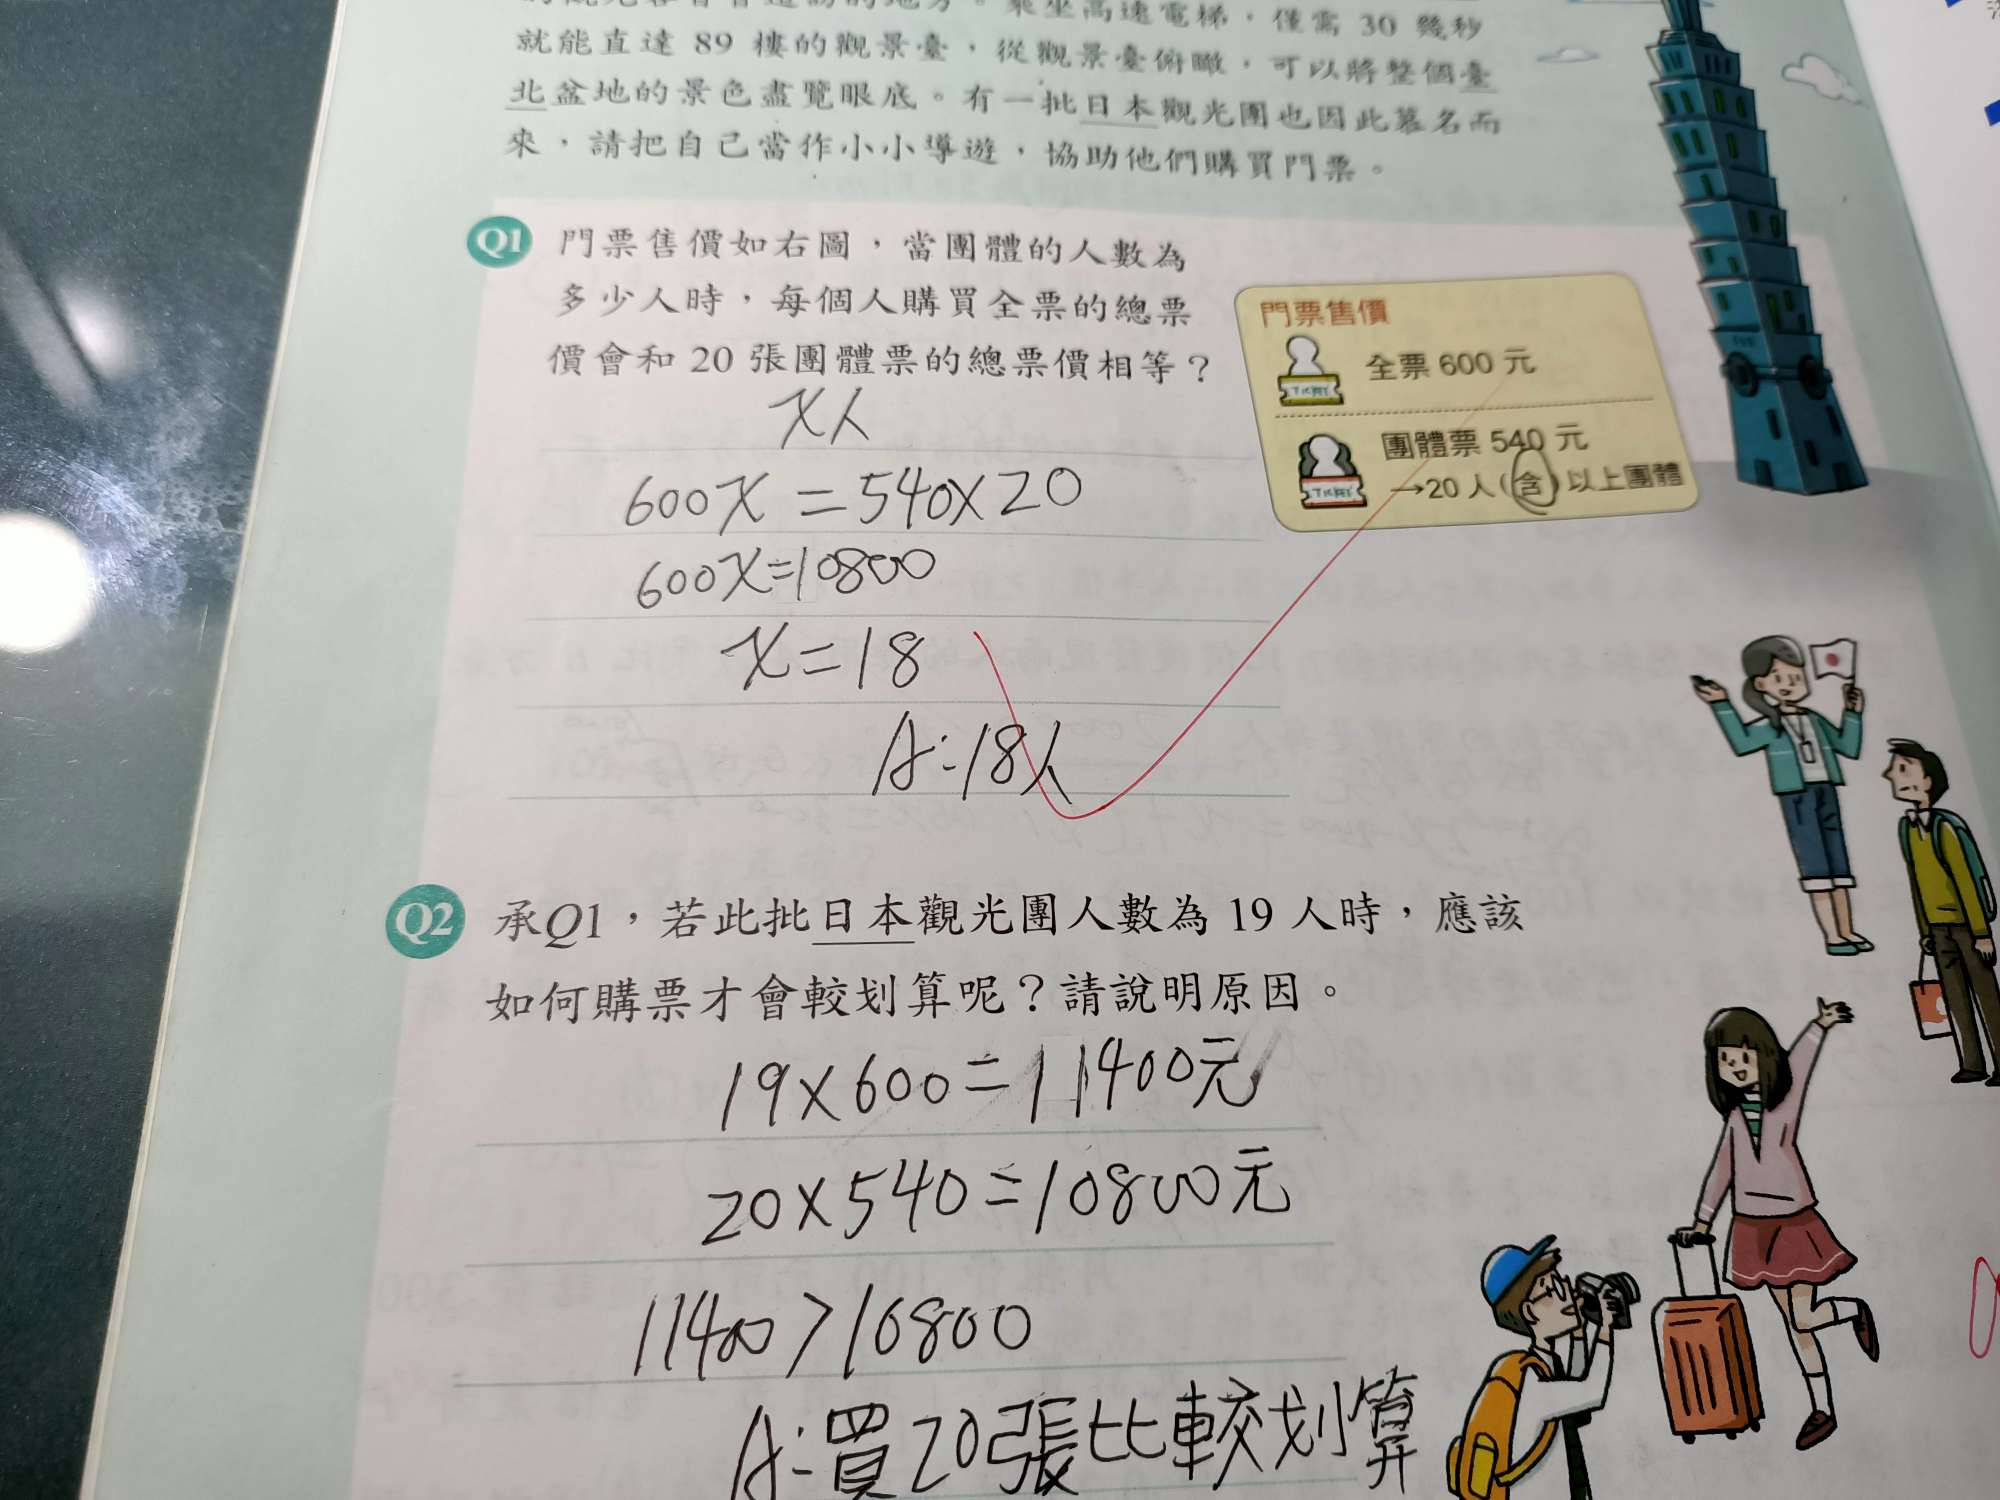 的觀光客會造訪的地方。乘坐高速電梯，僅需 30 幾秒
就能直達 89 樓的觀景臺，從觀景臺俯瞰，可以將整個臺
北盆地的景色盡覽眼底。有一批日本觀光團也因此慕名而
來，請把自己當作小小導遊，協助他們購買門票。
Q1 門票售價如右圖，當團體的人數為
多少人時，每個人購買全票的總票
價會和 20 張團體票的總票價相等？
門票售價
全票 600 元
TICKET
團體票 540 元
→20 人(含)以上團體
TICKET
x人
600x=540×20
600x=10800
x=18
A:18人
Q2 承Q1，若此批日本觀光團人數為 19 人時，應該
如何購票才會較划算呢？請說明原因。
19×600=11400元
20×540=10800元
11400>10800
A:買20張比較划算